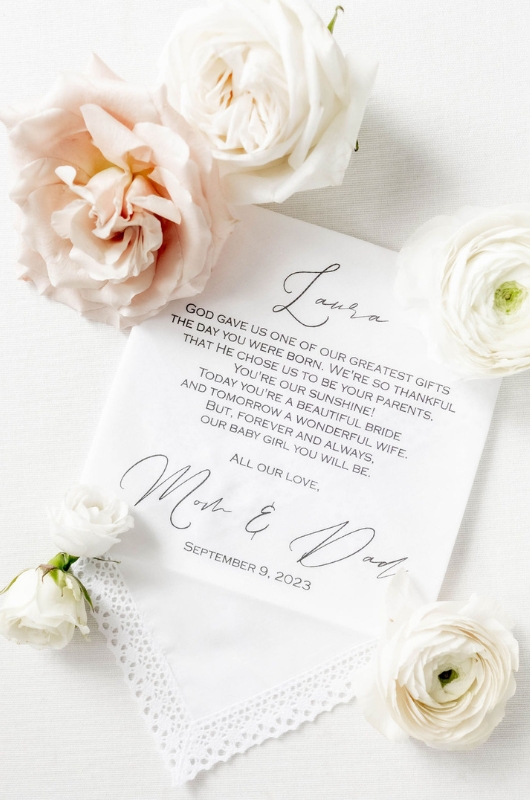 Laura
GOD GAVE US ONE OF OUR GREATEST GIFTS
THE DAY YOU WERE BORN. WE'RE SO THANKFUL
THAT HE CHOSE US TO BE YOUR PARENTS.
YOU'RE OUR SUNSHINE!
TODAY YOU'RE A BEAUTIFUL BRIDE
AND TOMORROW A WONDERFUL WIFE.
BUT, FOREVER AND ALWAYS,
OUR BABY GIRL YOU WILL BE.
ALL OUR LOVE,
Mom & Dad
SEPTEMBER 9, 2023